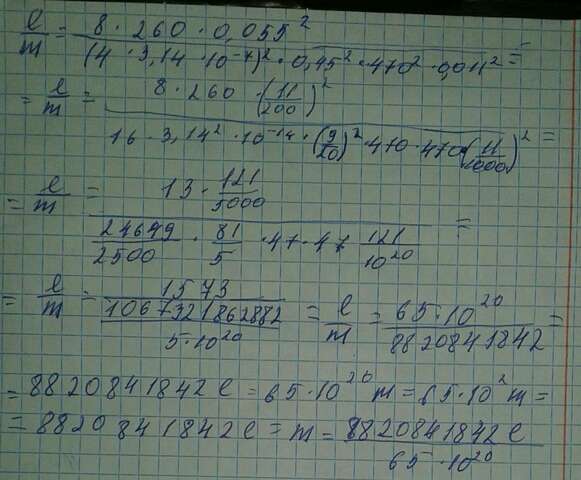 e/m = 8 · 260 · 0,055² / (4 · 3,14 · 10⁻⁷)² · 0,45² · 470² · 0,011² =
= e/m = 8 · 260 · (11/200)² / 16 · 3,14² · 10⁻¹⁴ · (9/20)² · 470 · 470 (11/1000)² =
= e/m = 13 · 121/5000 / 24649/2500 · 81/5 · 47 · 47 121/10²⁰ =
= e/m = 1573 / 1067321862882/5·10²⁰ = e/m = 65·10²⁰/8820841842 =
= 8820841842 e = 65·10²⁰ m = 65·10² m =
= 8820841842 e = m = 8820841842 e / 65·10²⁰